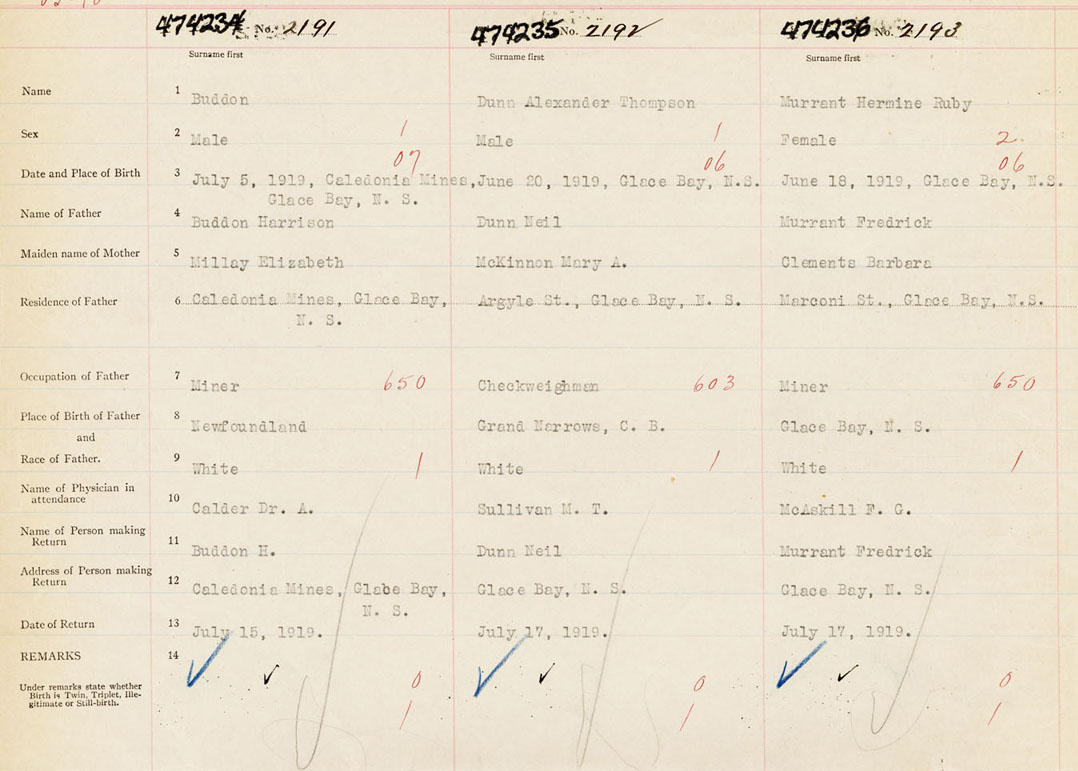 474234 No. 2191 474235 No. 2192 474236 No. 2193
Surname first Surname first Surname first
Name 1 Buddon Dunn Alexander Thompson Murrant Hermine Ruby
Sex 2 Male 1 Male 1 Female 2
07 06 06
Date and Place of Birth 3 July 5, 1919, Caledonia Mines, June 20, 1919, Glace Bay, N.S. June 18, 1919, Glace Bay, N.S.
Glace Bay, N. S.
Name of Father 4 Buddon Harrison Dunn Neil Murrant Fredrick
Maiden name of Mother 5 Millay Elizabeth McKinnon Mary A. Clements Barbara
Residence of Father 6 Caledonia Mines, Glace Bay, Argyle St., Glace Bay, N. S. Marconi St., Glace Bay, N.S.
N. S.
Occupation of Father 7 Miner 650 Checkweighman 603 Miner 650
Place of Birth of Father 8 Newfoundland Grand Narrows, C. B. Glace Bay, N. S.
and
Race of Father. 9 White 1 White 1 White 1
Name of Physician in
attendance 10 Calder Dr. A. Sullivan M. T. McAskill F. G.
Name of Person making
Return 11 Buddon H. Dunn Neil Murrant Fredrick
Address of Person making
Return 12 Caledonia Mines, Glabe Bay, Glace Bay, N. S. Glace Bay, N. S.
N. S.
Date of Return 13 July 15, 1919. July 17, 1919. July 17, 1919.
REMARKS 14
Under remarks state whether 0 0 0
Birth is Twin, Triplet, Ille-
gitimate or Still-birth. 1 1 1